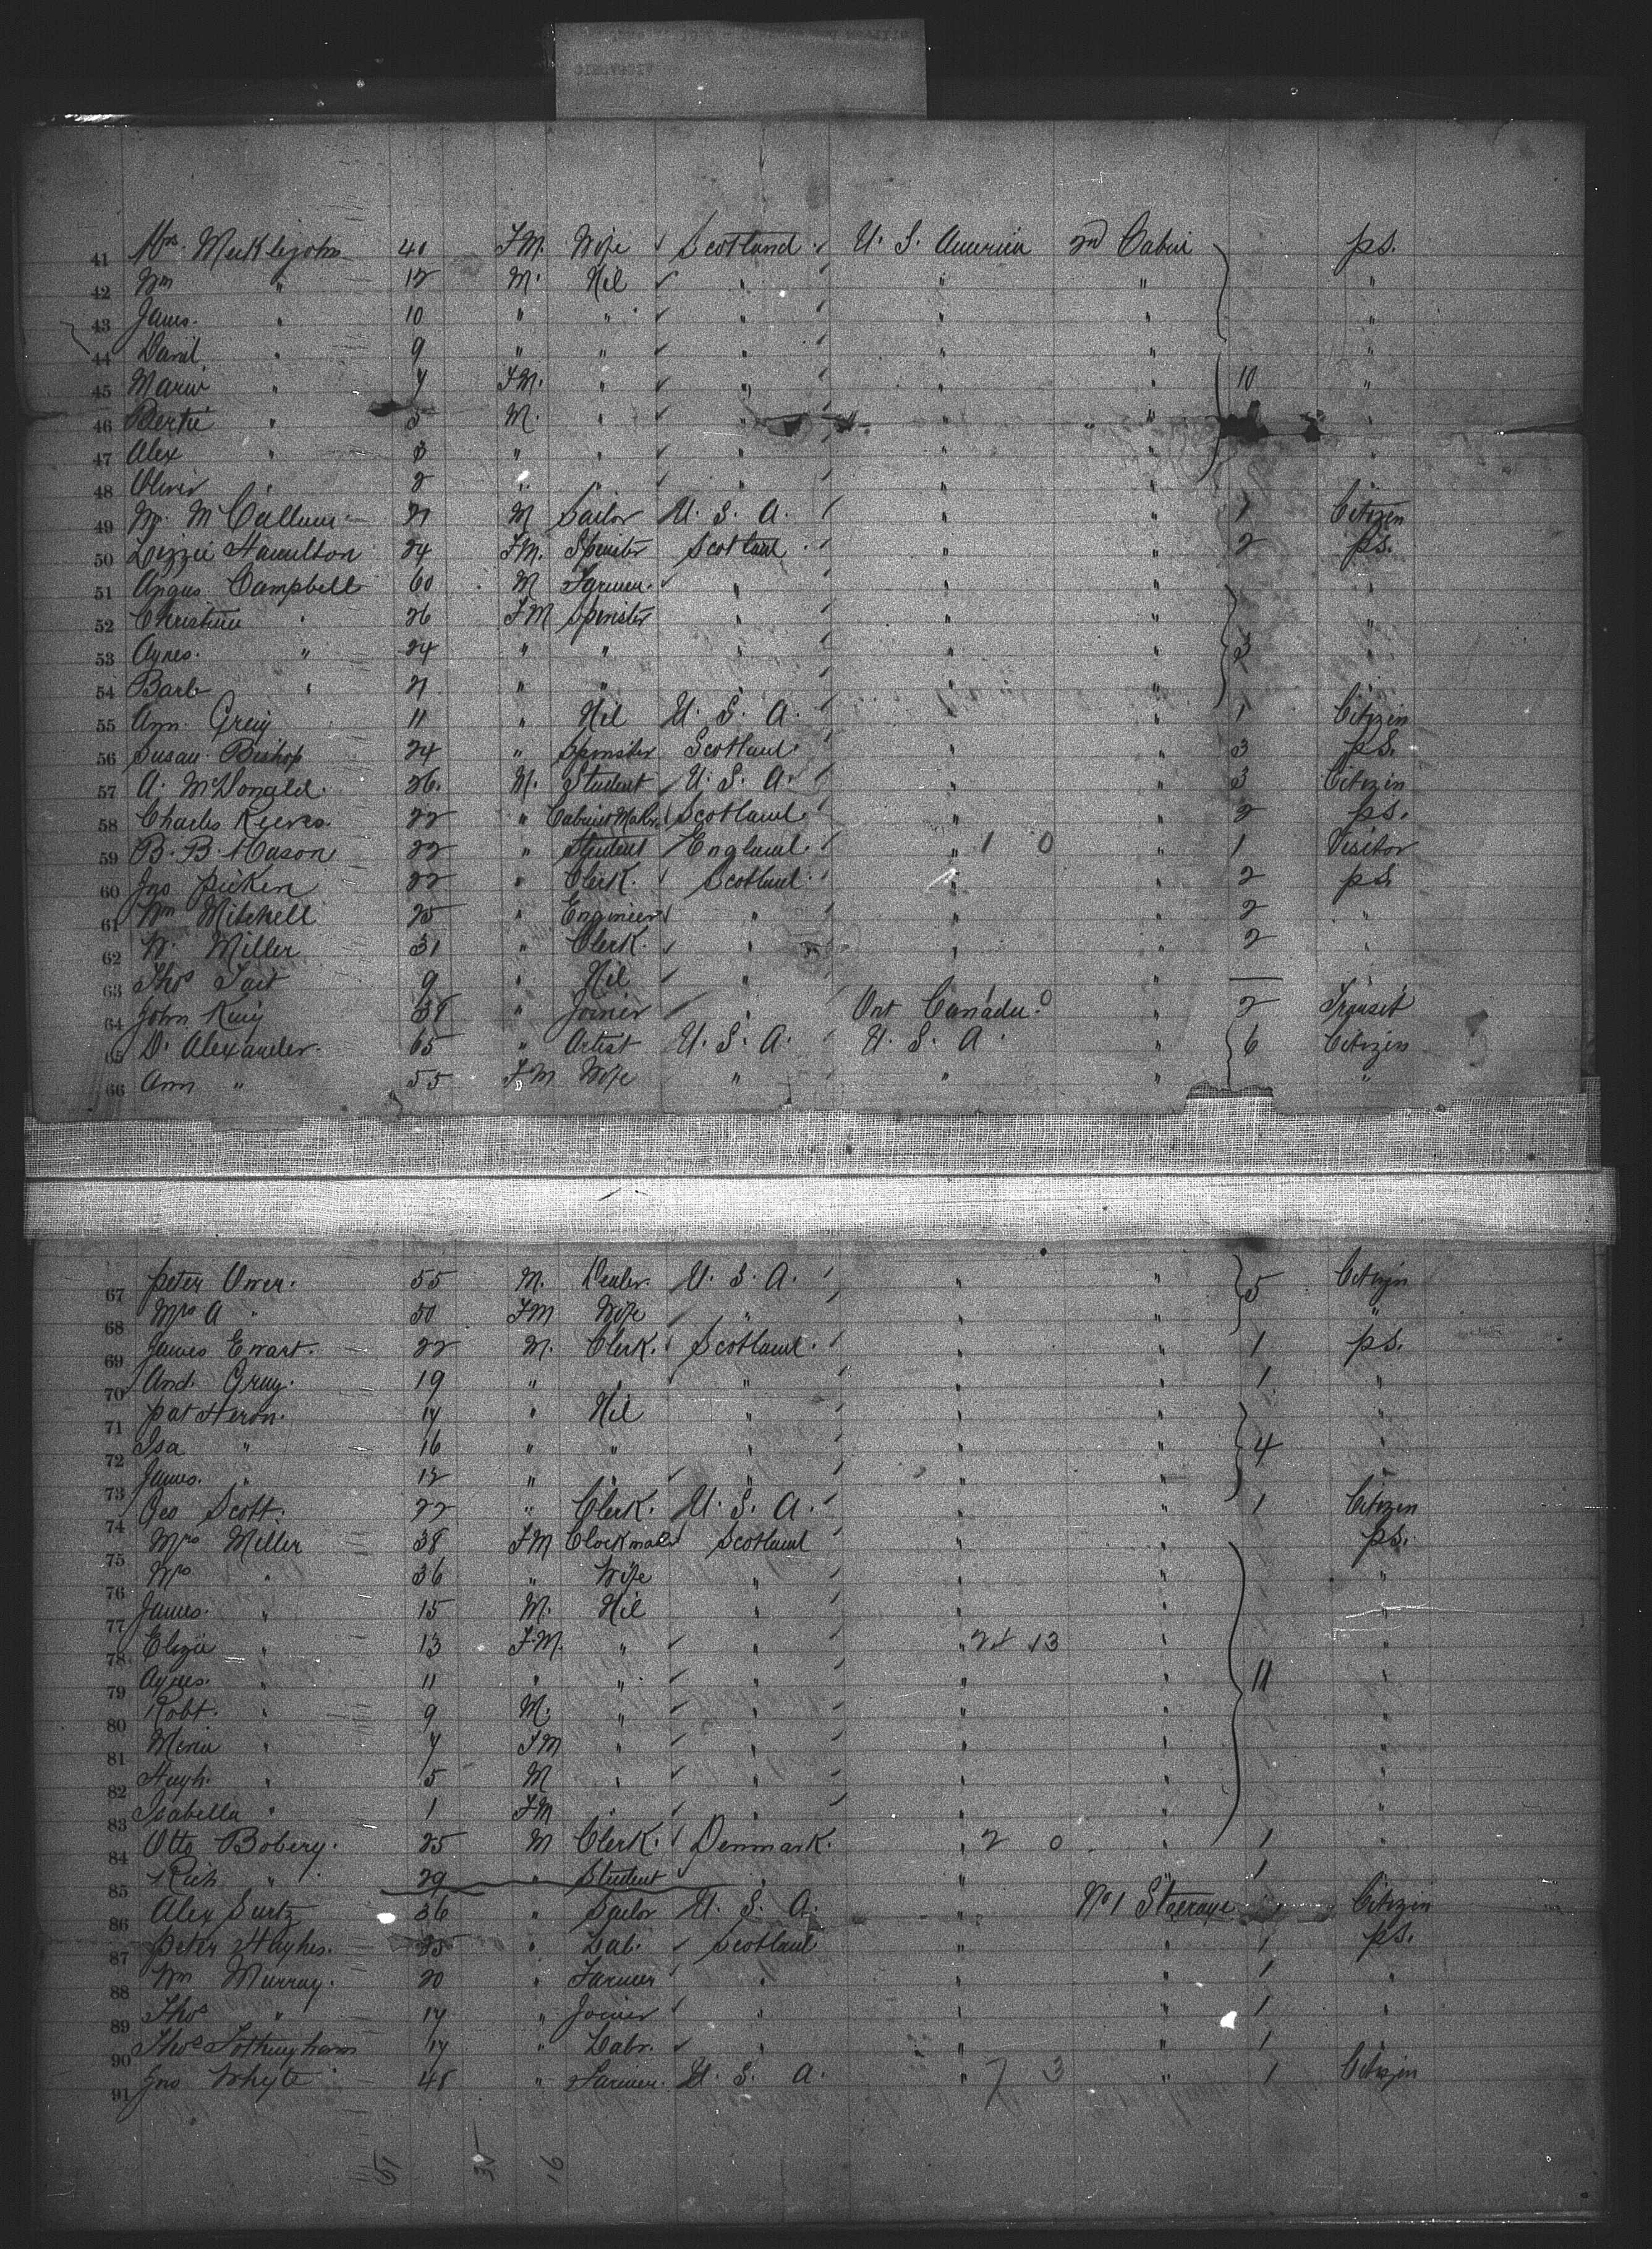 41 Mrs. Meeklejohn 40 FM. Wife Scotland. U. S. America 2nd Cabin ps.
42 Wm " 12 M. Nil " " " "
43 James. " 10 " " " " " "
44 David " 9 " " " " " "
45 Marie " 7 FM. " " " " 10 "
46 Bertie " 5 M. " " " " "
47 Alex " 3 " " " " " "
48 Oliver " 2 " " " " " "
49 Wm. McCallum 21 M Sailor U. S. A. " " 1 Citizen
50 Lizzie Hamilton 24 FM. Spinster Scotland. " " 2 ps.
51 Angus Campbell 60 M Farmer. " " " "
52 Christina " 26 FM Spinster " " " "
53 Agnes. " 24 " " " " " 3 "
54 Barb " 21 " " " " "
55 Ann. Greig 11 " Nil U. S. A. " " 1 Citizen
56 Susan Bishop 24 " Spinster Scotland. " " 3 ps.
57 A. McDonald. 26. M. Student U. S. A. " " 3 Citizen
58 Charles Reeves. 22 " Cabinet Makr. Scotland. " " 2 ps.
59 B. B. Mason 22 " Student England. " 1 0 " 1 Visitor
60 Jno Picken 22 " Clerk. Scotland. " " 2 ps.
61 Wm Mitchell 25 " Engineer " " " 2 "
62 W. Miller 31 " Clerk. " " " 2 "
63 Thos Tait 9 " Nil " " " —
64 John King 39 " Joiner " Ont Canada. " 2 Transit
65 D. Alexander. 65 " Artist U. S. A. U. S. A. " 6 Citizen
66 Ann " 55 FM Wife " " " "
67 Peter Orrer. 55 M. Dealer. U. S. A. " " 5 Citizen
68 Mrs A " 50 FM Wife " " " "
69 James Ewart. 22 M. Clerk. Scotland. " " 1 ps.
70 And. Gray. 19 " " " " " 1 "
71 Pat Heron. 17 " Nil " " " "
72 Isa " 16 " " " " " 4 "
73 James. " 12 " " " " " "
74 Geo Scott. 22 " Clerk. U. S. A. " " 1 Citizen
75 Mrs Miller 38 FM Clockmaker Scotland " " ps.
76 Mrs " 36 " Wife " " " "
77 James. " 15 M. Nil " " " "
78 Elizie " 13 F.M. " " " 24 13 " "
79 Agnes. " 11 " " " " " 11 "
80 Robt. " 9 M. " " " " "
81 Mina " 7 FM " " " " "
82 Hugh. " 5 M " " " " "
83 Isabella " 1 FM " " " " "
84 Otto Boberg. 25 M Clerk. Denmark. " 2 0 " 1 "
85 Rich " 29 " Student " " 1
86 Alex Surtz 36 " Sailor U. S. A. " No 1 Steerage Citizen
87 Peter Hughes. 35 " Lab. Scotland " " 1 ps.
88 Wm Murray. 20 " Farmer " " " 1 "
89 Thos " 17 " Joiner " " " 1 "
90 Thos Fothringham 17 " Labr. " " " 1
91 Jno Whyte 48 " Farmer. U. S. A. " 7 3 " 1 Citizen
51 35 16